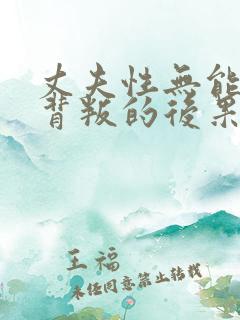 丈夫性無能
背叛的後果
王福
未经同意禁止转载